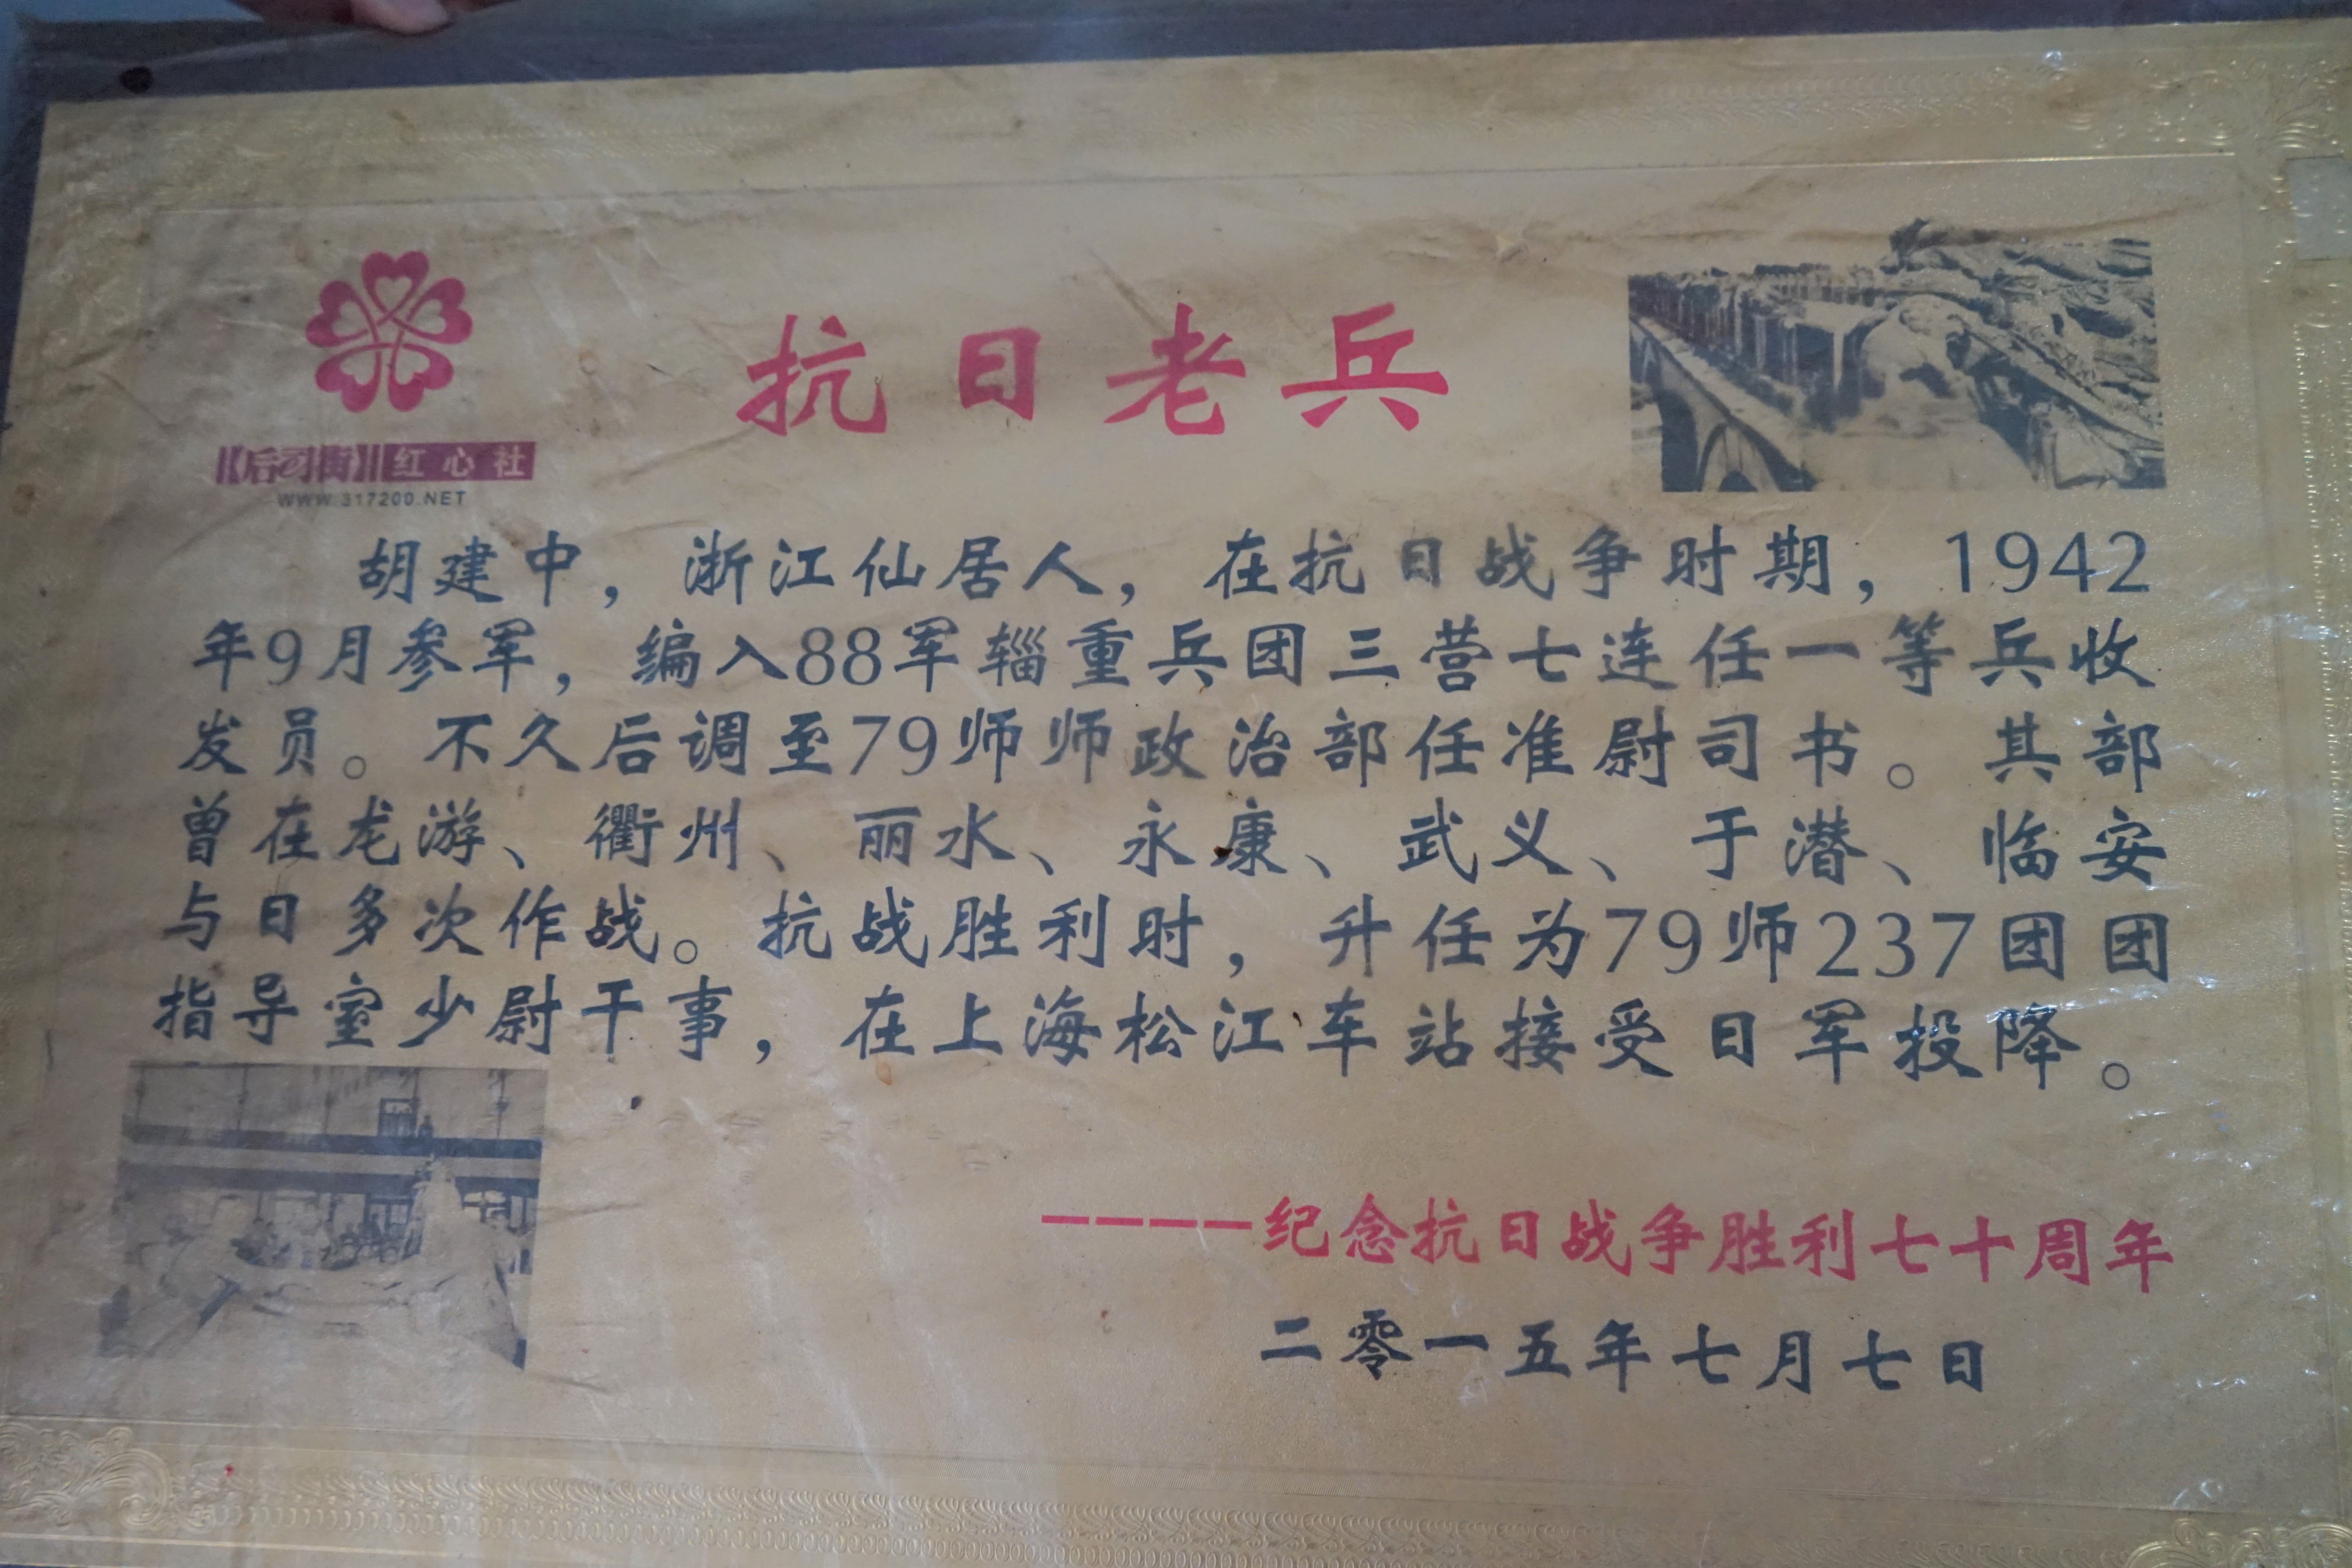 抗日老兵
《后司街》红心社
WWW.317200.NET
胡建中，浙江仙居人，在抗日战争时期，1942
年9月参军，编入88军辎重兵团三营七连任一等兵收
发员。不久后调至79师师政治部任准尉司书。其部
曾在龙游、衢州、丽水、永康、武义、于潜、临安
与日多次作战。抗战胜利时，升任为79师237团团
指导室少尉干事，在上海松江车站接受日军投降。
----纪念抗日战争胜利七十周年
二零一五年七月七日